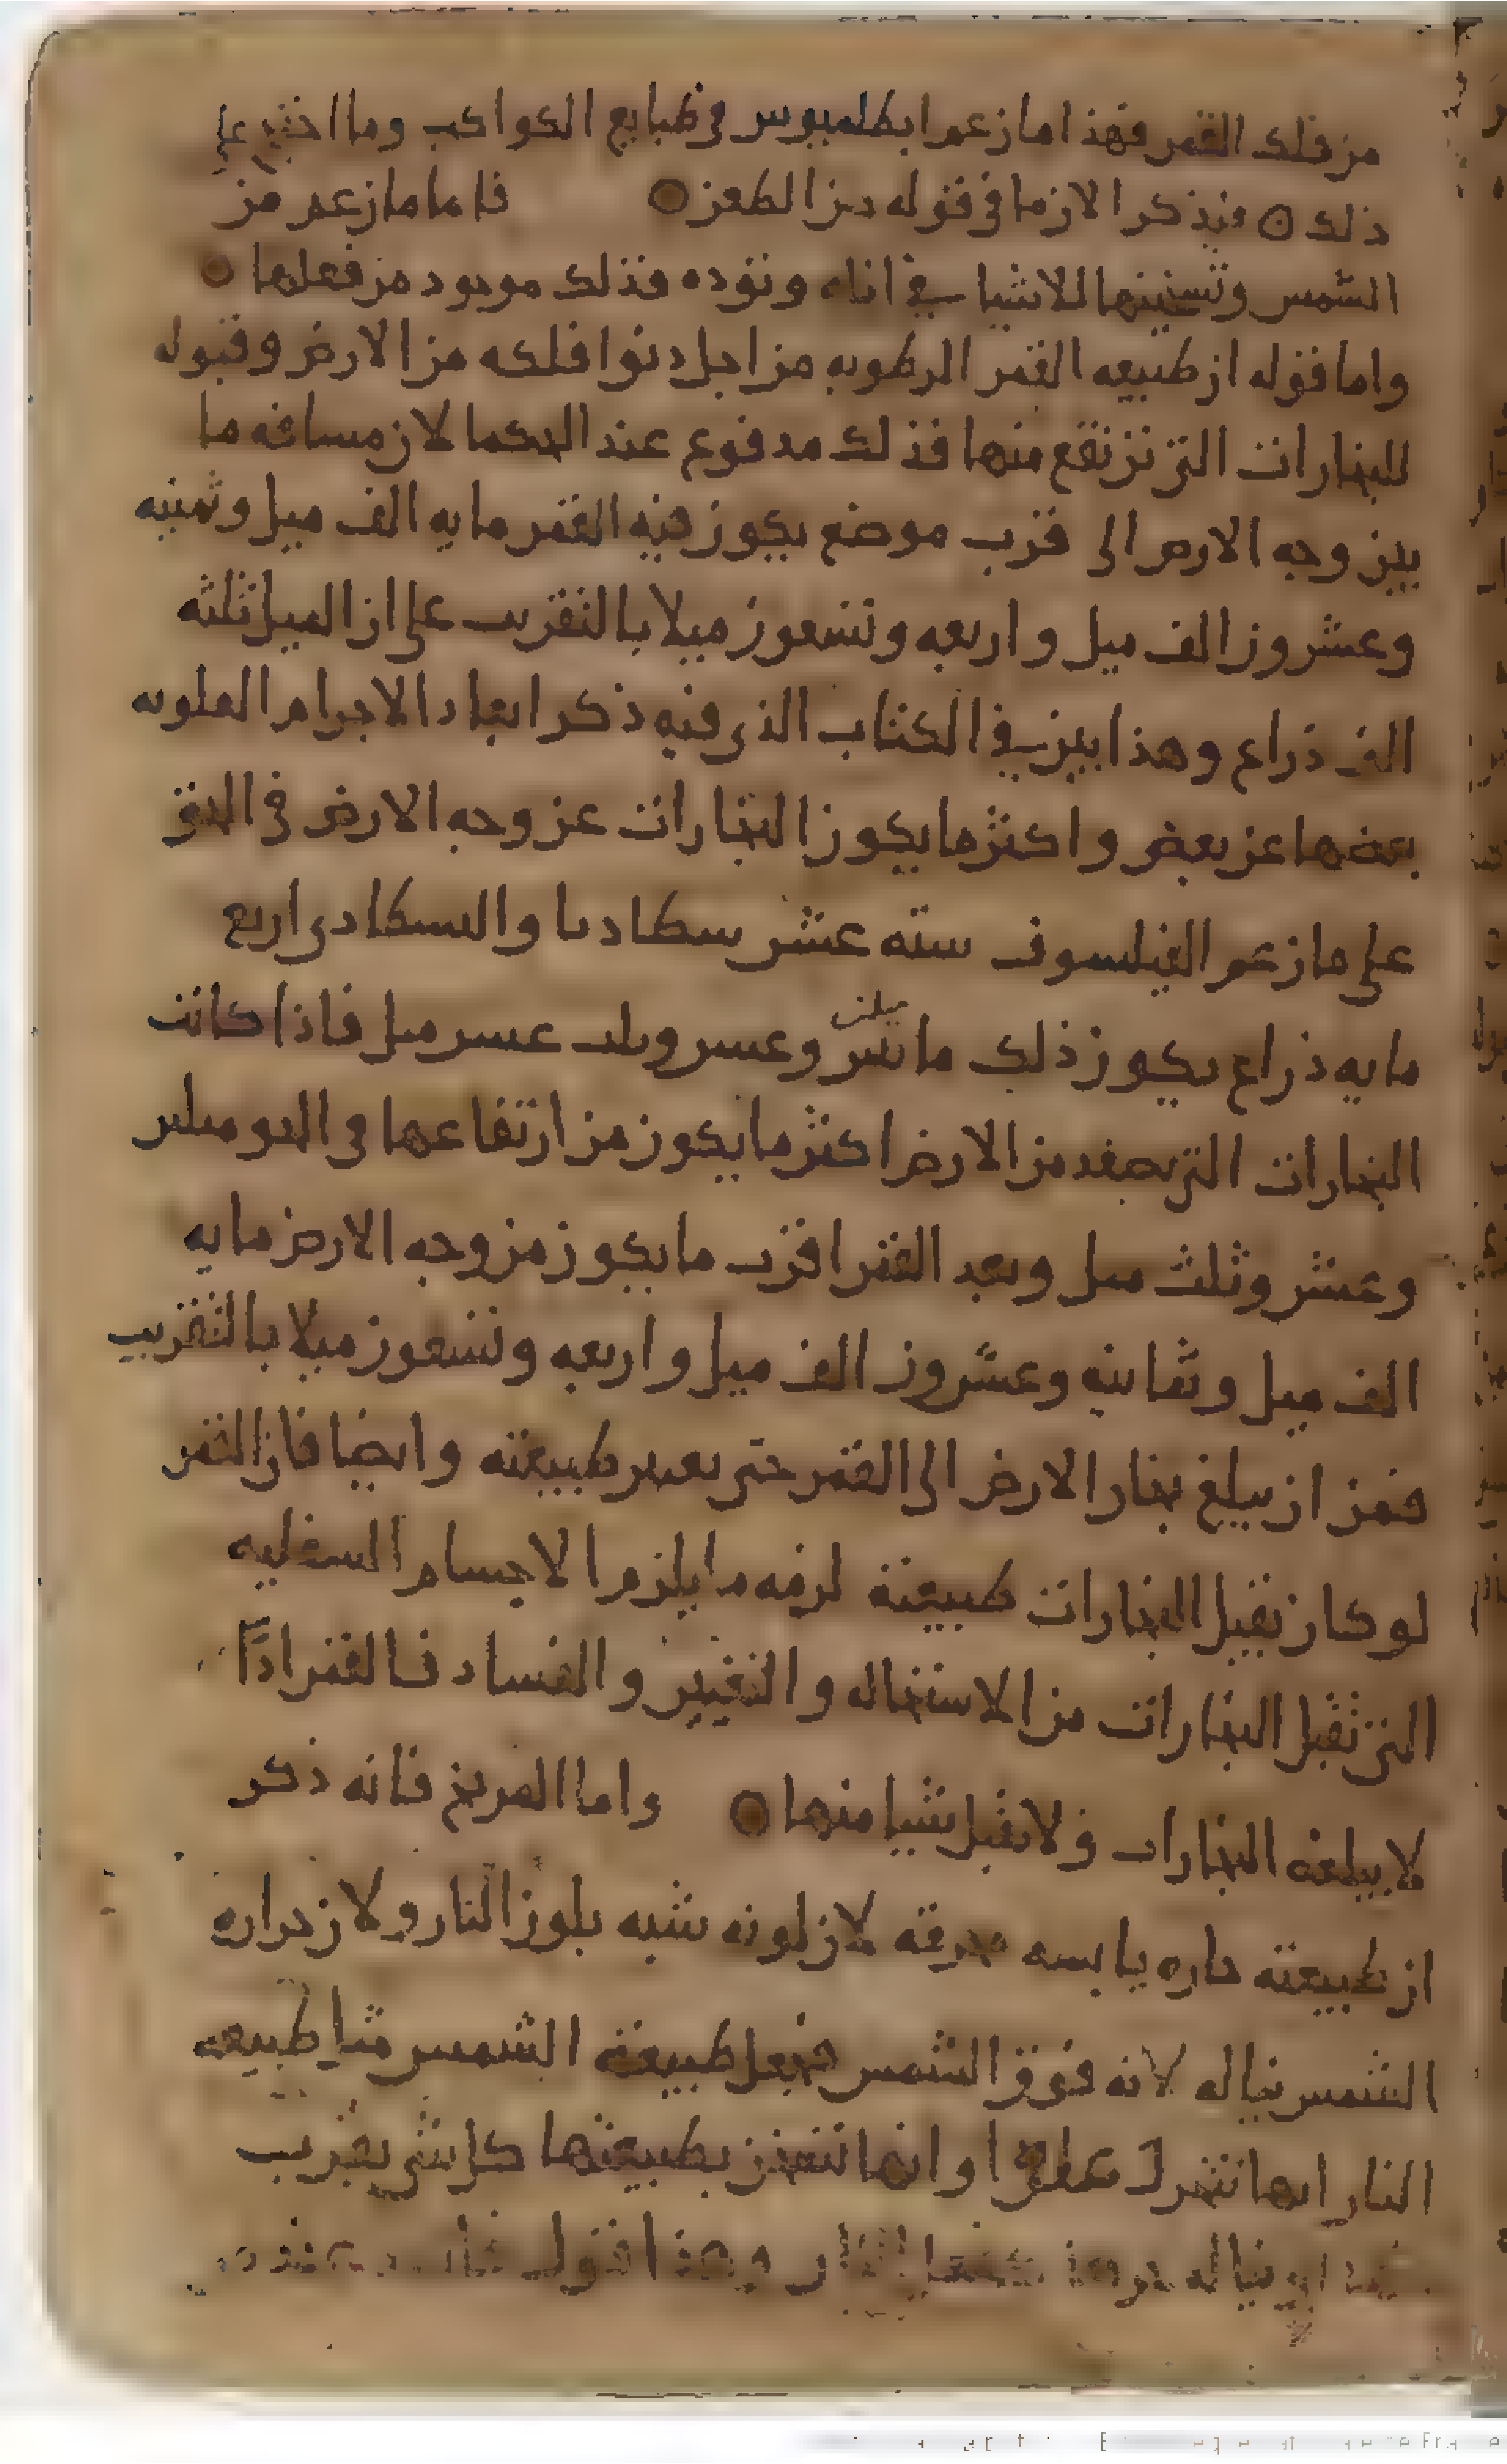 من فلك القمر فهذا ما زعم ابطلميوس في طبايع الكواكب وما احتج على
ذلك ۝ فنذكر الان ما في قوله من الطعن ۝ فاما ما زعم من
الشمس وتسخينها للاشيا في اناه وتوده فذلك موجود من فعلها ۝
واما قوله ان طبيعه القمر الرطوبه من اجل دنوا فلكه من الارض وقبوله
للبخارات التي ترتفع منها فذلك مدفوع عند الحكما لان مسافه ما
بين وجه الارض الى قرب موضع يكون فيه القمر مايه الف ميل وثمنيه
وعشرون الف ميل واربعه وتسعون ميلا بالتقريب على ان الميل ثلثه
الف ذراع وهذا بين في الكتاب الذي فيه ذكر ابعاد الاجرام العلويه
بعضها عن بعض واكثر ما يكون البخارات عن وجه الارض في الجو
على ما زعم الفيلسوف سته عشر سطاديا والسطادي اربع
مايه ذراع يكون ذلك ميلين وعشر وثلث عشر ميل فاذا كانت
البخارات التي تصعد من الارض اكثر ما يكون من ارتفاعها في الجو ميلين
وعشر وثلث ميل وبعد القمر اقرب ما يكون من وجه الارض مايه
الف ميل وثمانيه وعشرون الف ميل واربعه وتسعون ميلا بالتقريب
فمن ان يبلغ بخار الارض الى القمر حتى يغير طبيعته وايضا فان القمر
لو كان تقبل البخارات طبيعته لزمه ما يلزم الاجسام السفليه
التي تقبل البخارات من الاستحاله والتغيير والفساد فالقمر اذًا
لا يبلغه البخارات ولا يقبل شيا منها ۝ واما المريخ فانه ذكر
ان طبيعته حاره يابسه محرقه لان لونه شبه بلون النار ولان حراره
الشمس تناله لانه فوق الشمس فجعل طبيعته الشمس مثل طبيعه
النار انها تتحرك علوا وانها تسخن بطبيعتها كل شي يقرب